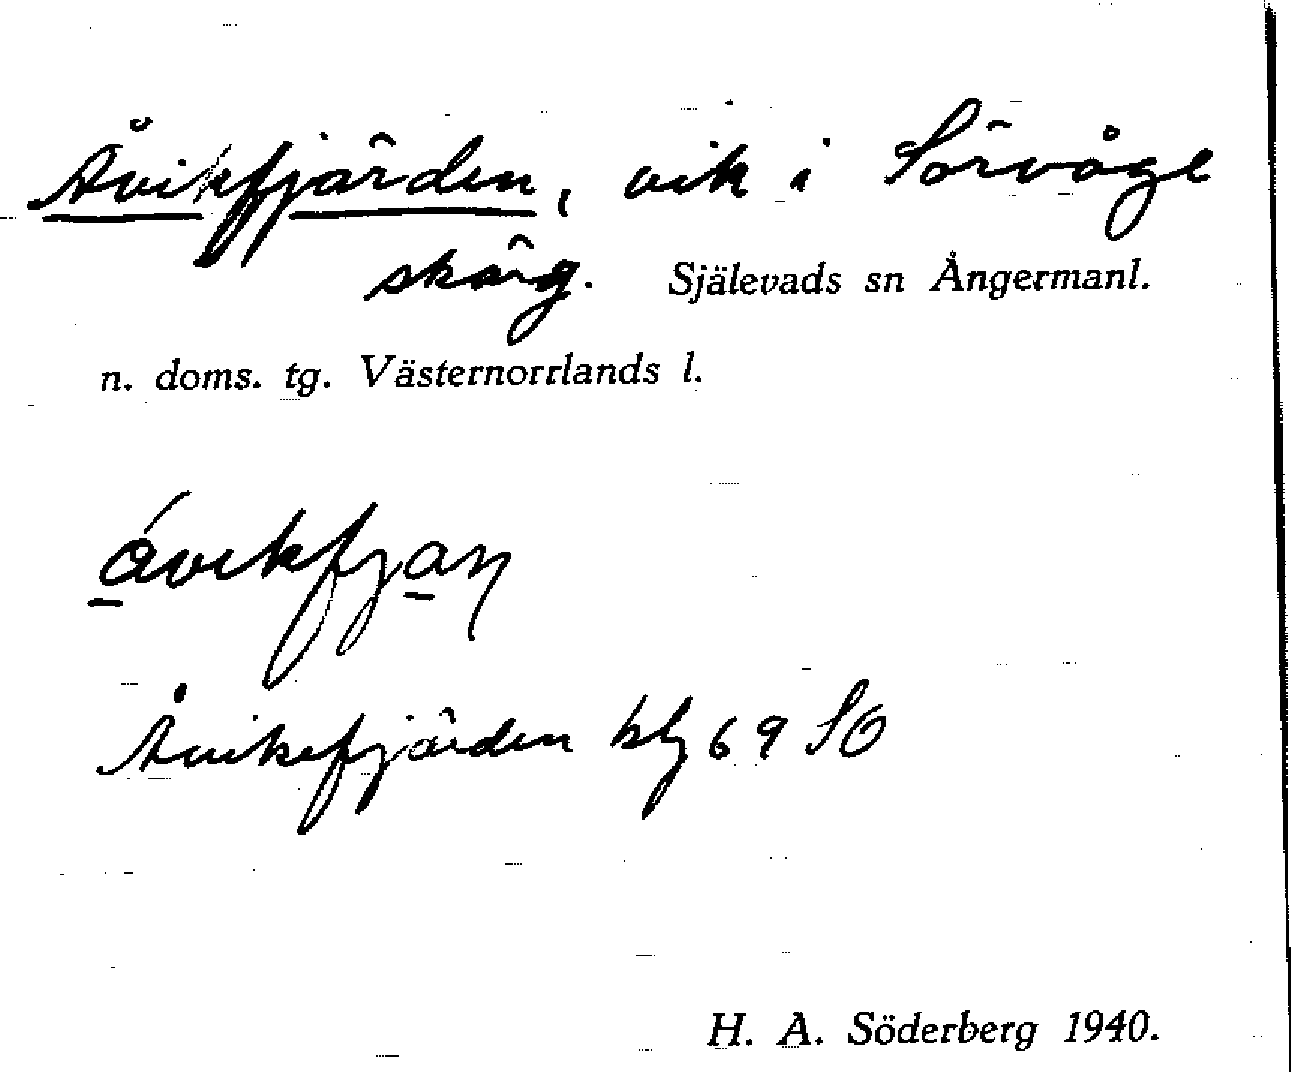 Åvikfjärden, vik i Sörvåge
skärg. Själevads sn Ångermanl.
n. doms. tg. Västernorrlands l.
ávikfjaṉ
Åvikefjärden kbl 69 SO
H. A. Söderberg 1940.